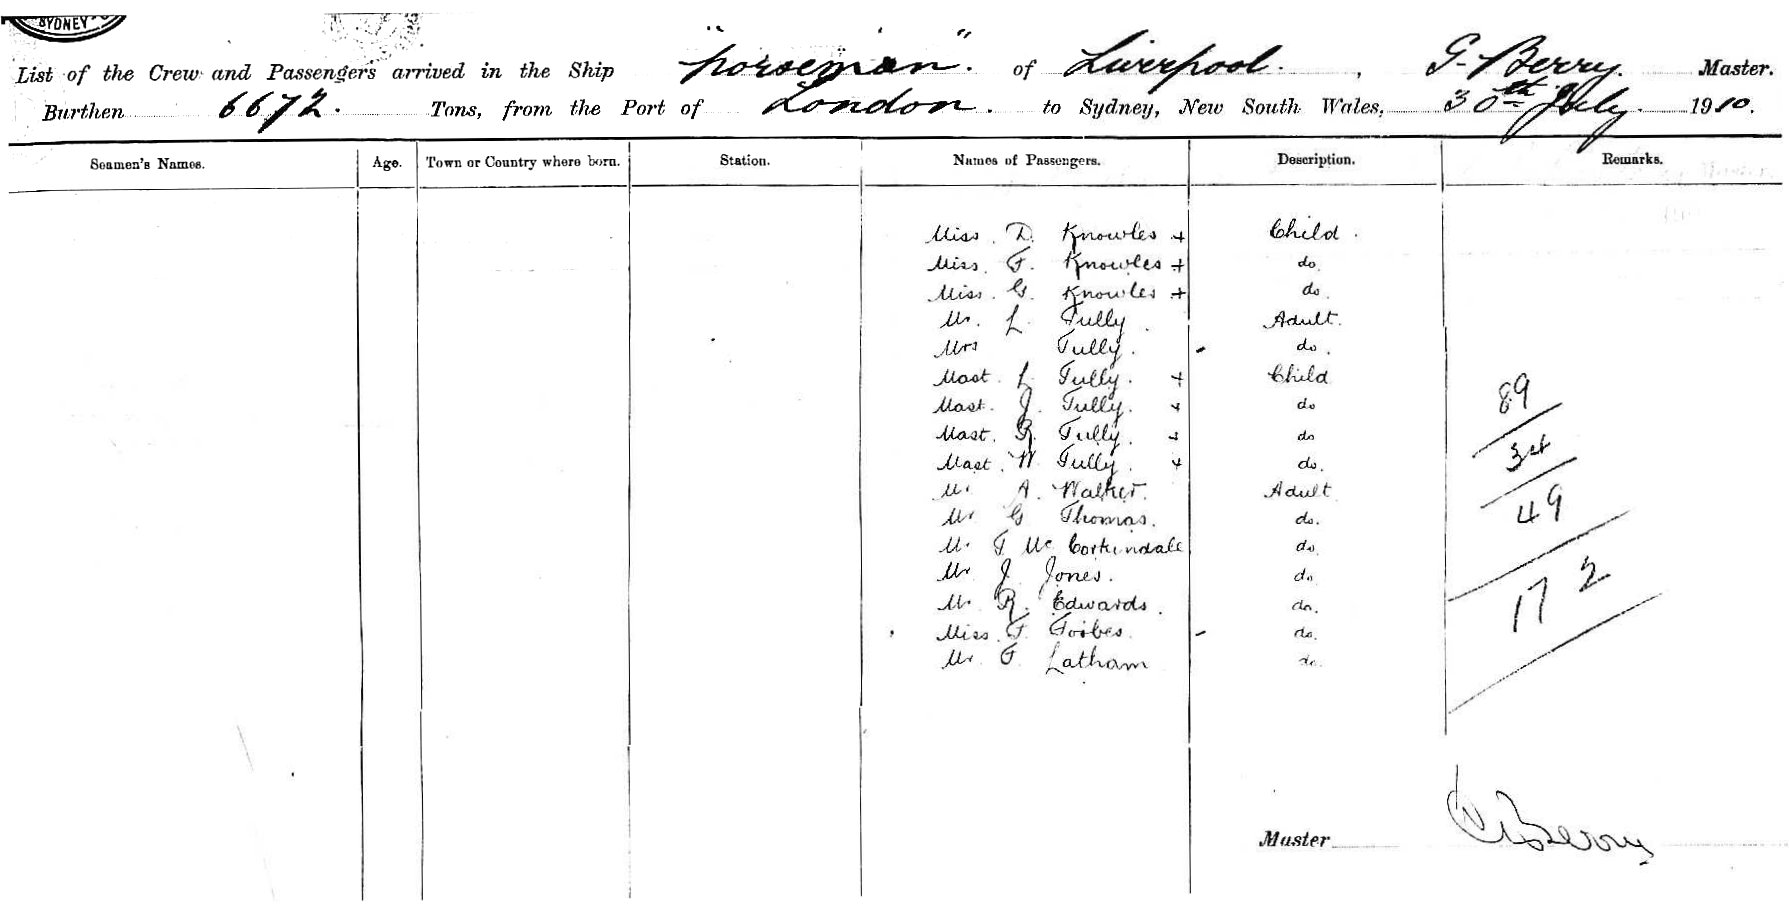 SYDNEY
List of the Crew and Passengers arrived in the Ship "Norseman". of Liverpool. , G. Berry. Master.
Burthen 6672. Tons, from the Port of London. to Sydney, New South Wales, 30th July 1910.
Seamen's Names. Age. Town or Country where born. Station. Names of Passengers. Description. Remarks.
Miss. D. Knowles + Child.
Miss. F. Knowles + do.
Miss. G. Knowles + do.
Mr. L. Tully. Adult.
Mrs Tully. - do.
Mast. L. Tully. + Child
Mast. J. Tully. + do
Mast. R. Tully. + do
Mast. W. Tully. + do.
Mr. A. Walker. Adult
Mr G Thomas. do.
Mr. T Mc Corkindale do.
Mr J. Jones. do
Mr. R. Edwards. do.
Miss. F. Forbes. - do.
Mr. F. Latham do.
89
34
49
172
Master G Berry